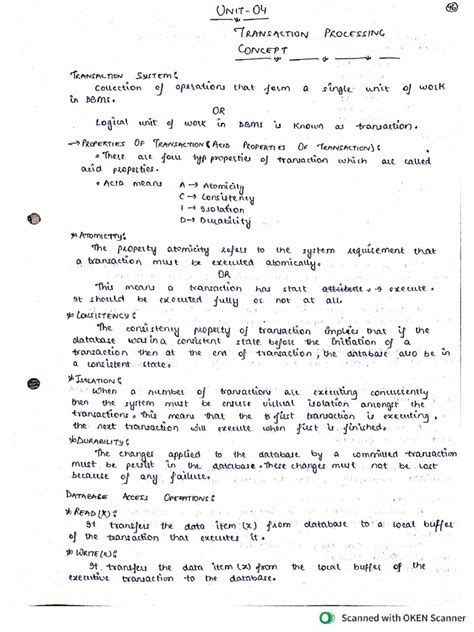 UNIT-04
TRANSACTION PROCESSING
CONCEPT
TRANSACTION SYSTEM :
Collection of operations that form a single unit of work
in DBMS.
OR
Logical unit of work in DBMS is known as transaction.
→ PROPERTIES OF TRANSACTION (ACID PROPERTIES OF TRANSACTION) :
• There are four typ properties of transaction which are called
acid properties.
• ACID means A → Atomicity
C → Consistency
I → Isolation
D → Durability
* ATOMICITY :
The property atomicity refers to the system requirement that
a transaction must be executed atomically.
OR
This means a transaction has start → execute.
It should be executed fully or not at all.
* CONSISTENCY :
The consistency property of transaction implies that if the
database was in a consistent state before the initiation of a
transaction then at the end of transaction, the database also be in
a consistent state.
* ISOLATION :
When a number of transactions are executing concurrently
then the system must be ensure virtual isolation amongst the
transactions. This means that the first transaction is executing,
the next transaction will execute when first is finished.
* DURABILITY :
The changes applied to the database by a committed transaction
must be persist in the database. These changes must not be lost
because of any failure.
DATABASE ACCESS OPERATIONS :
* READ(X) :
It transfers the data item (x) from database to a local buffer
of the transaction that executes it.
* WRITE(X) :
It transfers the data item (x) from the local buffer of the
executive transaction to the database.
Scanned with OKEN Scanner